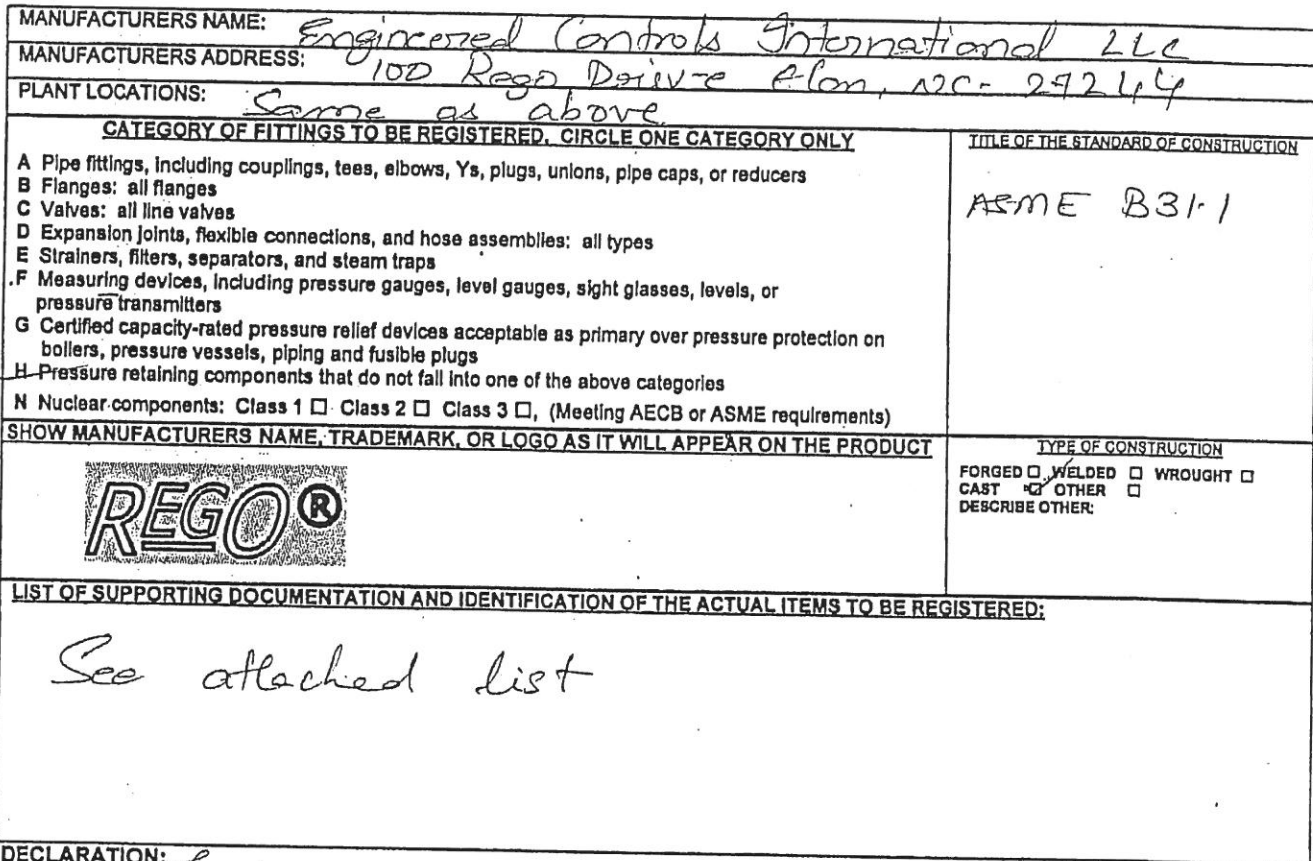 MANUFACTURERS NAME: Engineered Controls International LLC
MANUFACTURERS ADDRESS: 100 Rego Drive Elon, NC- 27244
PLANT LOCATIONS: Same as above
CATEGORY OF FITTINGS TO BE REGISTERED, CIRCLE ONE CATEGORY ONLY
A Pipe fittings, including couplings, tees, elbows, Ys, plugs, unions, pipe caps, or reducers
B Flanges: all flanges
C Valves: all line valves
D Expansion joints, flexible connections, and hose assemblies: all types
E Strainers, filters, separators, and steam traps
F Measuring devices, including pressure gauges, level gauges, sight glasses, levels, or
pressure transmitters
G Certified capacity-rated pressure relief devices acceptable as primary over pressure protection on
boilers, pressure vessels, piping and fusible plugs
H Pressure retaining components that do not fall into one of the above categories
N Nuclear components: Class 1 ☐ Class 2 ☐ Class 3 ☐, (Meeting AECB or ASME requirements)
TITLE OF THE STANDARD OF CONSTRUCTION
ASME B31.1
SHOW MANUFACTURERS NAME, TRADEMARK, OR LOGO AS IT WILL APPEAR ON THE PRODUCT
REGO®
TYPE OF CONSTRUCTION
FORGED ☐ WELDED ☐ WROUGHT ☐
CAST ☑ OTHER ☐
DESCRIBE OTHER:
LIST OF SUPPORTING DOCUMENTATION AND IDENTIFICATION OF THE ACTUAL ITEMS TO BE REGISTERED:
See attached list
DECLARATION: